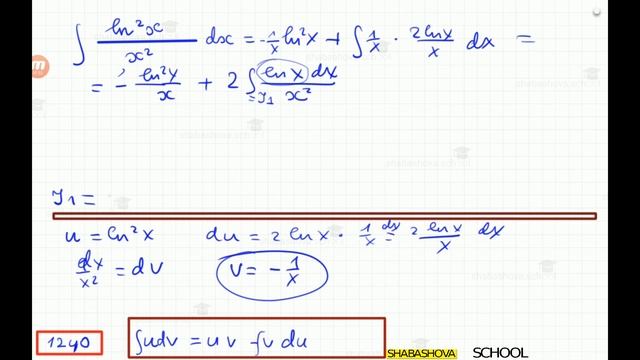 ∫ ln²x / x² dx = -1/x ln²x + ∫ 1/x · 2lnx/x dx =
= - ln²x/x + 2 ∫ lnx dx / x²
= J₁
J₁ =
u = ln²x du = 2 lnx · 1/x dx = 2 lnx/x dx
dx/x² = dv v = - 1/x
1240 ∫udv = uv - ∫v du
SHABASHOVA SCHOOL